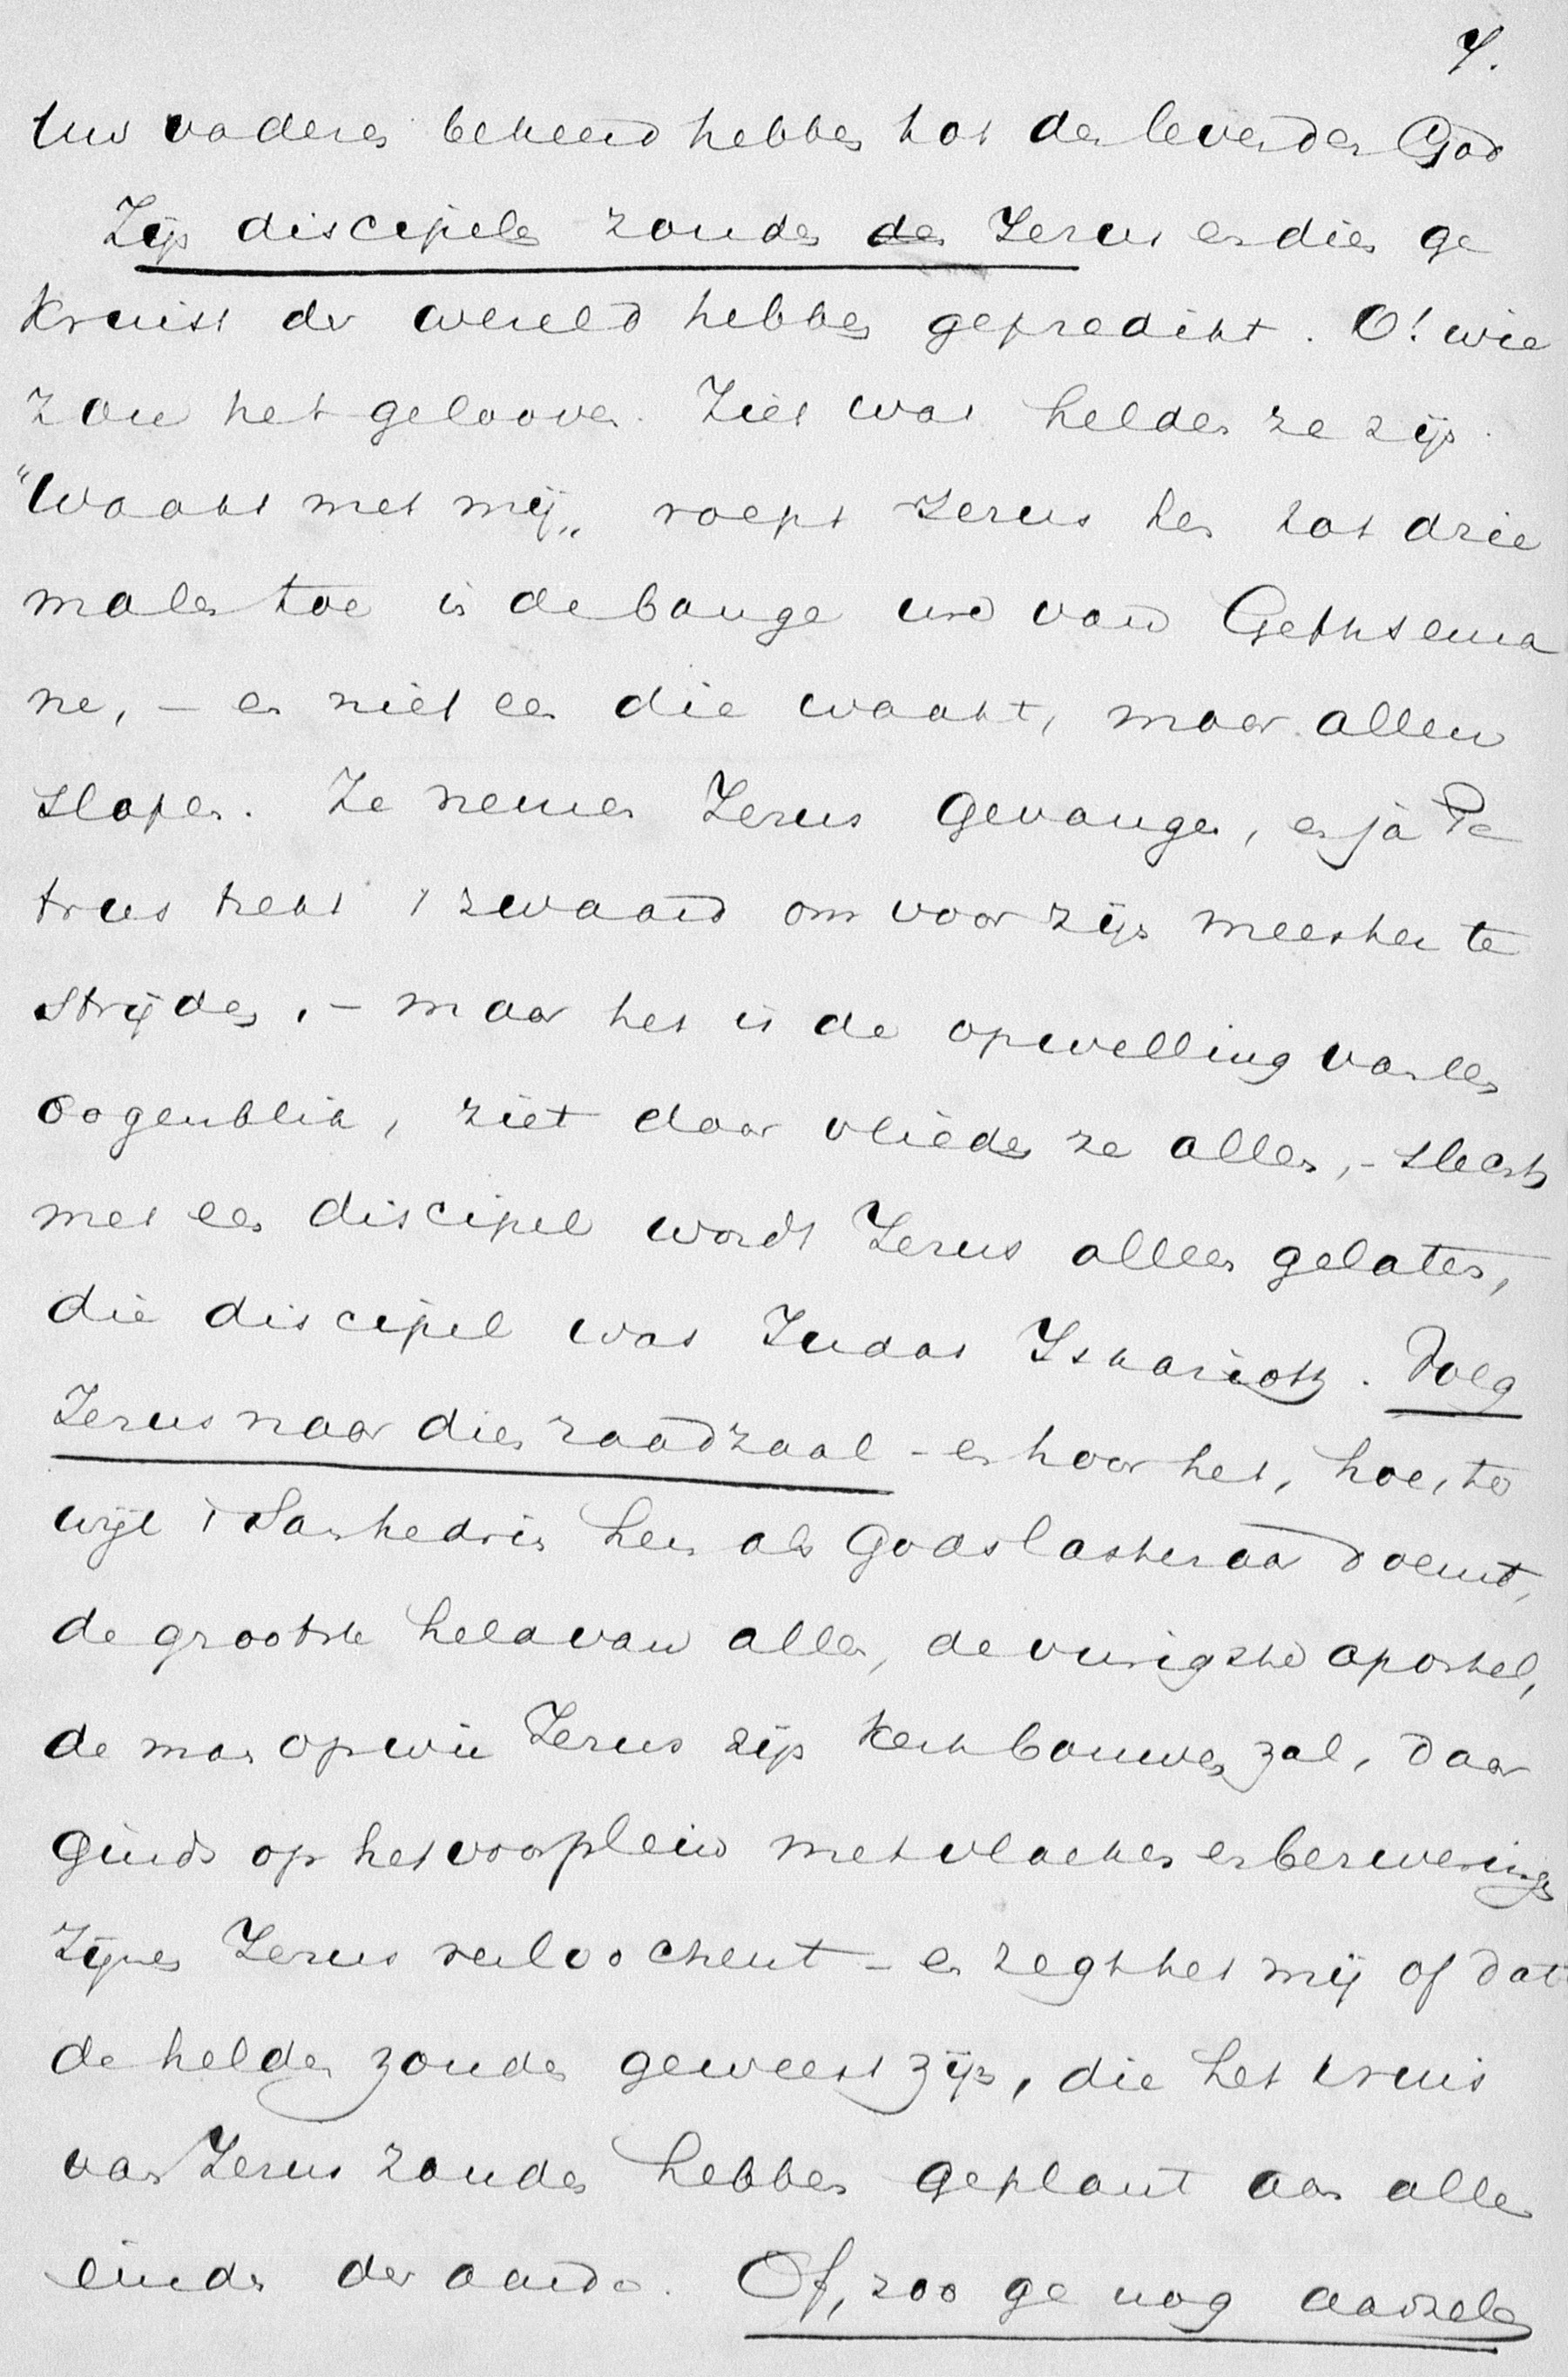 7.
Uw vaderen bekeerd hebben tot den levenden God
Zijn discipelen zouden den Jezus en dien ge
kruist der wereld hebben gepredikt. O! wie
zou het gelooven. Ziet wat helden ze zijn.
"Waakt met mij„ roept Jezus hen tot drie
malen toe in de bange ure van Gethsema
ne, – en niet een die waakt, maar allen
slapen. Ze nemen Jezus gevangen, en ja Pe
trus trekt 't zwaard om voor zijn meester te
strijden, – maar het is de opwelling van een
oogenblik, ziet daar vlieden ze allen, – slechts
met een discipel wordt Jezus alleen gelaten,
die discipel was Judas Iskarioth. Volg
Jezus naar dien raadzaal – en hoor het, hoe, ter
wijl 't Sanhedrin hem als Godslasteraar doemt,
de grootste held van allen, de vurigste apostel,
de man op wien Jezus zijn kerk bouwen zal, daar
ginds op het voorplein met vloeken en bezweringen
zijnen Jezus verloochent – en zegt het mij of dat
de helden zouden geweest zijn, die het kruis
van Jezus zouden hebben geplant aan alle
einden der aarde. Of, zoo ge nog aarzelen